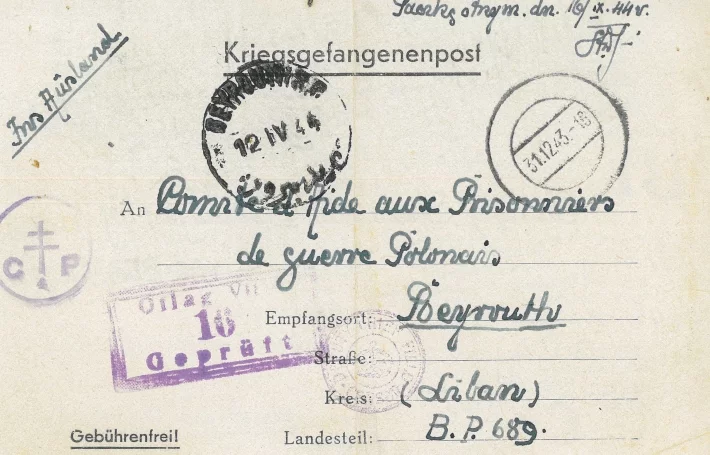 dn. 16/IX.44r.
Ins Ausland
Kriegsgefangenenpost
BEYROUTH R.P.
12 IV 44
31.12.43.-18
An Comité d'Aide aux Prisonniers
de guerre Polonais
C P
Oflag VII
16
Geprüft
Empfangsort: Beyrouth
Straße:
Kreis: (Liban)
Gebührenfrei!
Landesteil: B.P. 689.